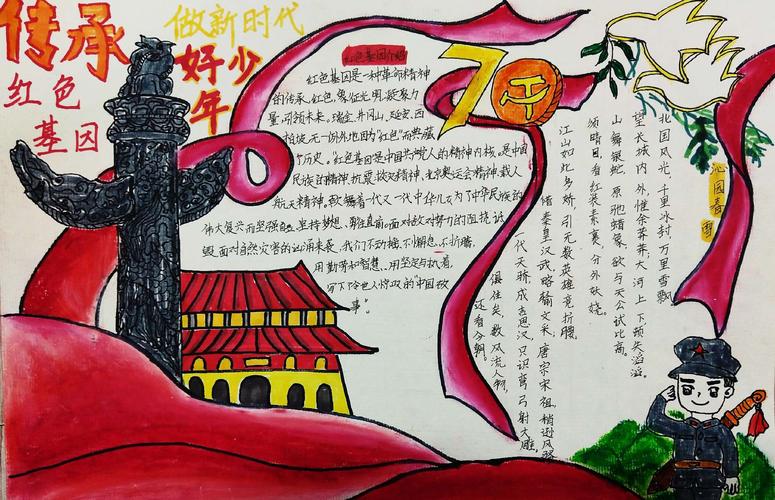 传承
红色
基因
做新时代
好少
年
70
红色基因介绍
红色基因是一种革命精神
的传承,红色,象征光明,凝聚力
量,引领未来。瑞金,井冈山,延安,西
柏坡,无一例外地因为"红色"而典藏
个历史。"红色基因是中国共产党人的精神内核。是中国
民族的精神
抗震救灾精神、北京奥运会精神、载人
航天精神。鼓舞着一代又一代中华儿女为了中华民族的
伟大复兴而坚强自
坚持梦想、勇往直前。面对敌对努力的阻挠、诋
毁,面对自然灾害的汹涌来袭,我们不动摇、不懈怠、不折腾,
用勤劳和智慧、用坚定与执着,
写下了令世人惊叹的"中国故
事"。
沁园春 雪
北国风光,千里冰封,万里雪飘
望长城内外,惟余莽莽;大河上下,顿失滔滔。
山舞银蛇,原驰蜡象,欲与天公试比高。
须晴日,看红装素裹,分外妖娆。
江山如此多娇,引无数英雄竞折腰。
惜秦皇汉武,略输文采,唐宗宋祖,稍逊风骚
一代天骄,成吉思汗,只识弯弓射大雕。
俱往矣,数风流人物,
还看今朝。